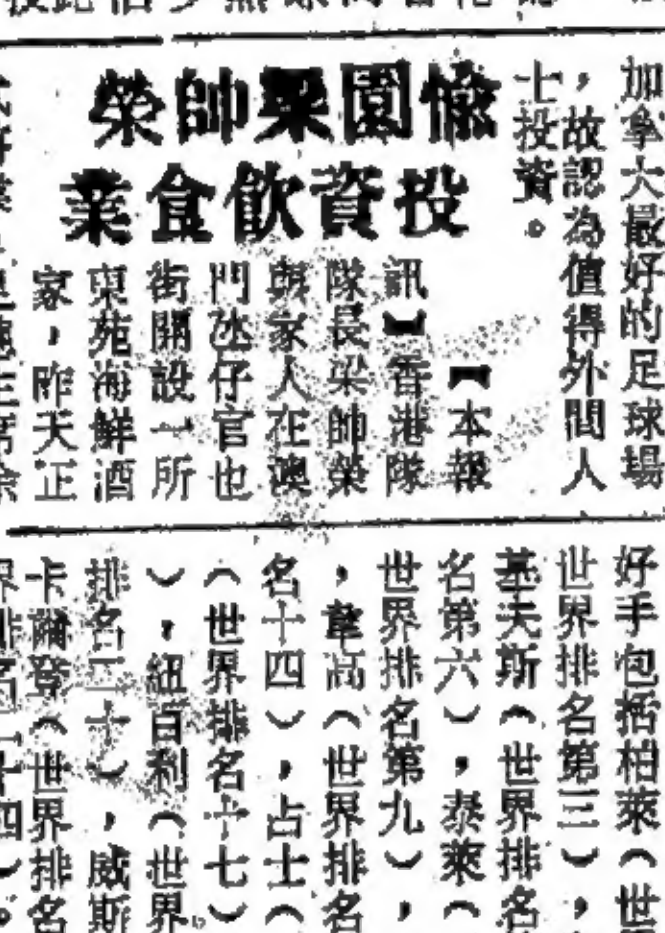 加拿大最好的足球場
，故認為值得外間人
士投資。
愉園梁帥榮
投資飲食業
【本報
訊】香港隊隊
長梁帥榮
與家人在澳
門氹仔官也
街開設一所
東苑海鮮酒
家，昨天正
好手包括柏萊（世
世界排名第三），
基夫斯（世界排名
名第六），泰萊（
世界排名第九），
，韋高（世界排名
名十四），占士（
（世界排名十七）
），紐百利（世界
排名二十），威斯
卡爾登（世界排名